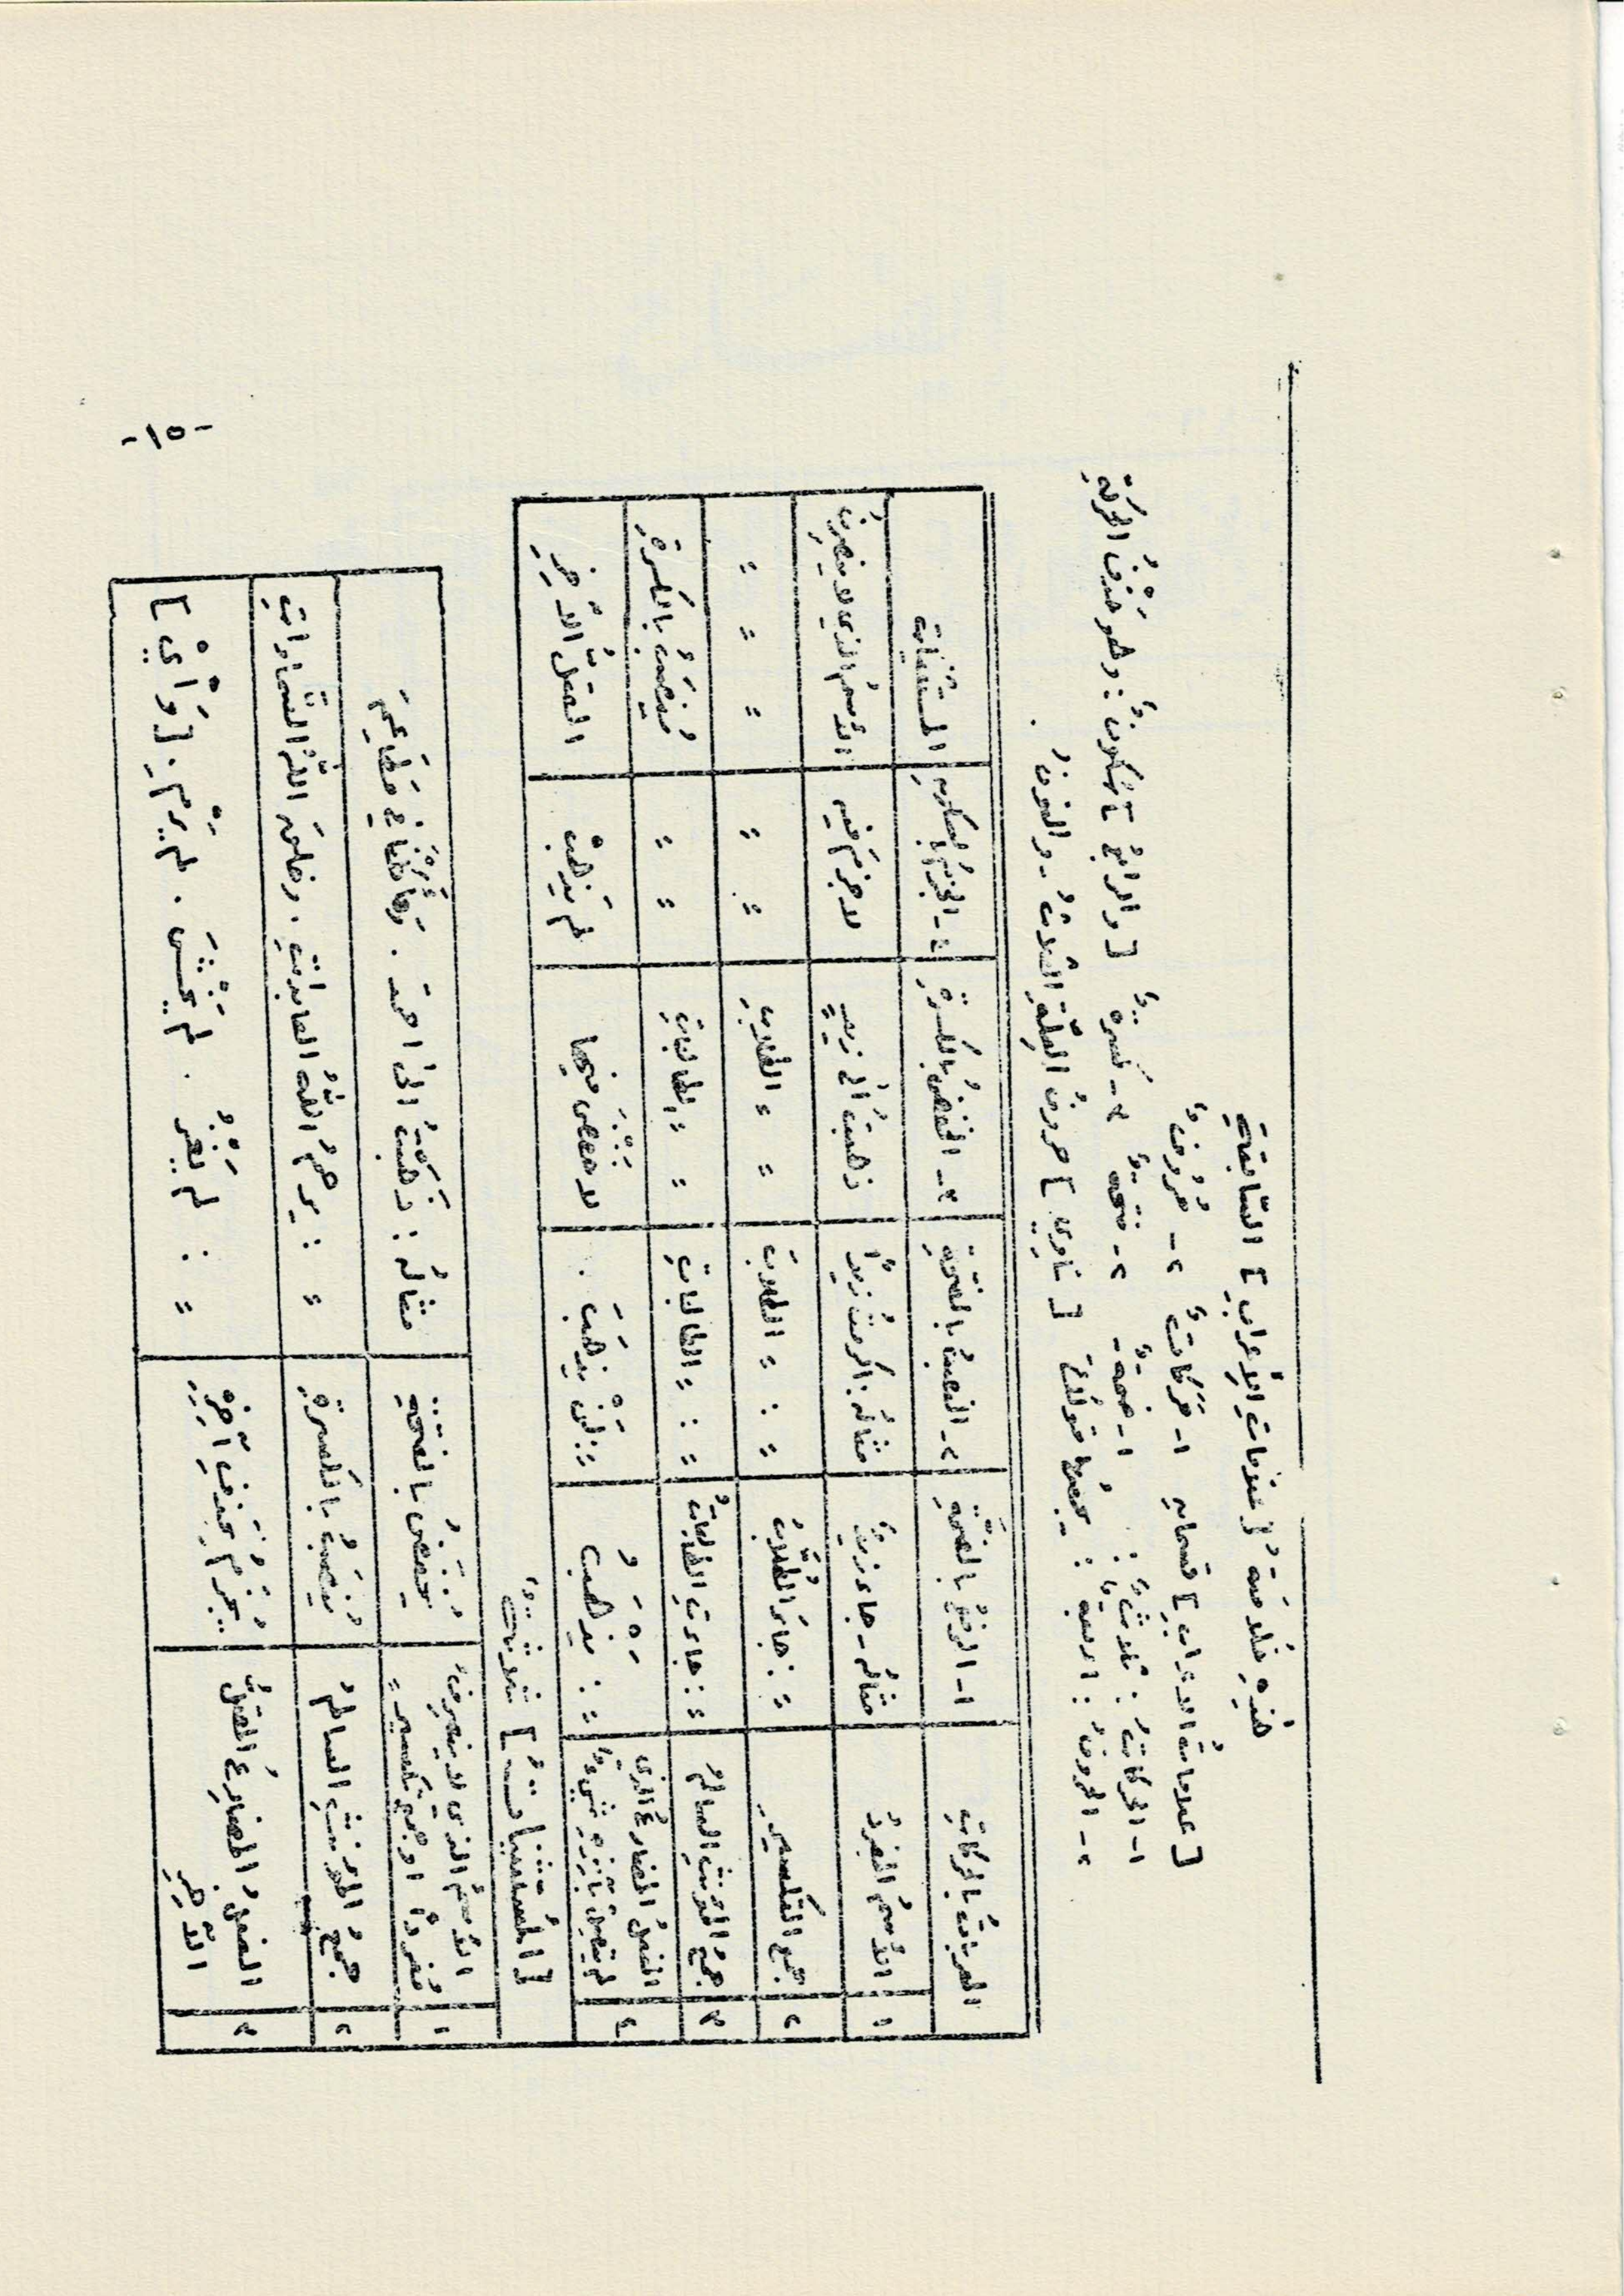 هٰذِهِ خُلَاصَةُ [ عَلَامَاتِ الْإِعْرَابِ ] السَّابِقَةِ
[ عَلَامَاتُ الْإِعْرَابِ ] قِسْمَانِ ١- حَرَكَاتٌ ٢- حُرُوفٌ
١- الْحَرَكَاتُ : ثَلَاثٌ : ١- ضَمَّةٌ - ٢- فَتْحَةٌ ٣- كَسْرَةٌ [ وَالرَّابِعُ ] سُكُونٌ : وَهُوَ حَذْفُ الْحَرَكَةِ
٢- الْحُرُوفُ : أَرْبَعَةٌ : يَجْمَعُهَا قَوْلُكَ [ نَاوِي ] حُرُوفُ الْعِلَّةِ الثَّلَاثُ - وَالنُّونُ .
الْمُعْرَبَاتُ بِالْحَرَكَاتِ ١- الرَّفْعُ بِالضَّمَّةِ ٢- النَّصْبُ بِالْفَتْحَةِ ٣- الْخَفْضُ بِالْكَسْرَةِ ٤- الْجَزْمُ بِالسُّكُونِ الْمُسْتَثْنَيَاتُ
١ الْاِسْمُ الْمُفْرَدُ مِثَالُهُ - جَاءَ زَيْدٌ مِثَالُهُ : أَكْرَمْتُ زَيْدًا ذَهَبْتُ إِلَى زَيْدٍ لَا جَزْمَ فِيهِ الْاِسْمُ الَّذِي لَا يَنْصَرِفُ
٢ جَمْعُ التَّكْسِيرِ = : جَاءَ الطُّلَّابُ = : = الطُّلَّابَ = = الطُّلَّابِ = = = = =
٣ جَمْعُ الْمُؤَنَّثِ السَّالِمُ = : جَاءَتِ الطَّالِبَاتُ = : = الطَّالِبَاتِ = = الطَّالِبَاتِ = = يُنْصَبُ بِالْكَسْرَةِ
٤ الْفِعْلُ الْمُضَارِعُ الَّذِي لَمْ يَتَّصِلْ بِآخِرِهِ شَيْءٌ = : يَذْهَبُ = : لَنْ يَذْهَبَ . لَا خَفْضَ فِيهَا لَمْ يَذْهَبْ الْمُعْتَلُّ الْآخِرِ
[ الْمُسْتَثْنَيَاتُ ] ثَلَاثَةٌ
١ الْاِسْمُ الَّذِي لَا يَنْصَرِفُ مُفْرَدًا أَوْ جَمْعَ تَكْسِيرٍ = يُخْفَضُ بِالْفَتْحَةِ مِثَالُهُ : ذَهَبْتُ إِلَى أَحْمَدَ .
٢ جَمْعُ الْمُؤَنَّثِ السَّالِمُ يُنْصَبُ بِالْكَسْرَةِ = : يَرْحَمُ اللّٰهُ الْعَابِدَاتِ . وَخَلَقَ اللّٰهُ السَّمَاوَاتِ
٣ الْفِعْلُ الْمُضَارِعُ الْمُعْتَلُّ الْآخِرِ يُجْزَمُ بِحَذْفِ آخِرِهِ = : لَمْ يَغْزُ . لَمْ يَخْشَ . لَمْ يَرْمِ . [ وَأْيْ ]
-١٥-